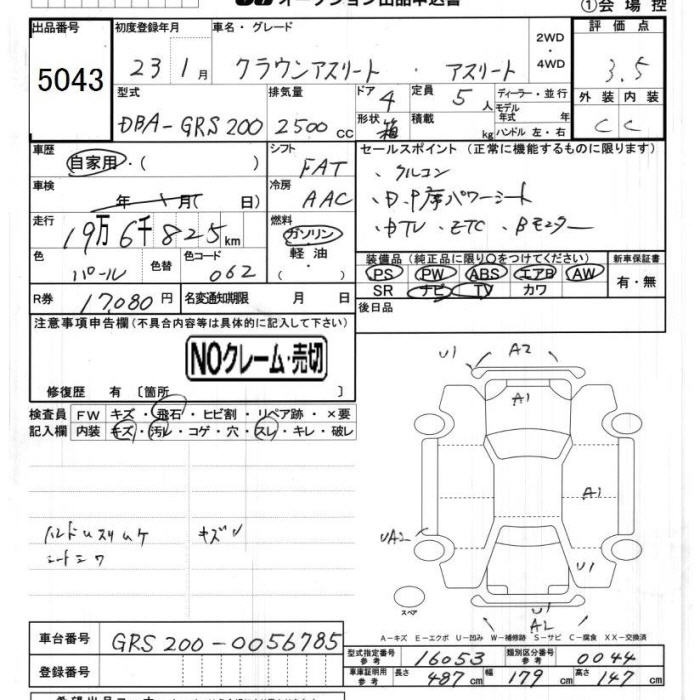 オークション出品申込書 ①会場控
出品番号 5043
初度登録年月 23 1月
車名・グレード クラウンアスリート ・ アスリート
2WD・4WD
評価点 3.5
型式 DBA-GRS200
排気量 2500 cc
ドア 4
形状 箱
定員 5人
積載 kg
ディーラー・並行
モデル年式 年
ハンドル 左・右
外装 C
内装 C
車歴 自家用・( )
シフト FAT
車検 年 月( 日)
冷房 AAC
走行 19万6千825km
燃料 ガソリン・軽油・( )
色 パール
色替
色コード 062
R券 17,080円
名変通知期限 月 日
セールスポイント(正常に機能するものに限ります)
、クルコン
、D.P席パワーシート
、DTV、ETC、Bモニター
装備品(純正品に限り○をつけてください) 新車保証書
PS PW ABS エアB AW 有・無
SR ナビ TV カワ
後日品
注意事項申告欄(不具合内容等は具体的に記入して下さい)
NOクレーム・売切
修復歴 有 〔箇所 〕
検査員 FW キズ・飛石・ヒビ割・リペア跡・×要
記入欄 内装 キズ・汚レ・コゲ・穴・スレ・キレ・破レ
ハンドルスリムケ キズソ
シートシワ
U1 A2
A1
A1
UA2
U1
U1
A2
スペア
A-キズ E-エクボ U-凹み W-補修跡 S-サビ C-腐食 XX-交換済
車台番号 GRS200-0056785
登録番号
型式指定番号 参考 16053
類別区分番号 参考 0044
車庫証明用 参考 長さ 487cm 幅 179cm 高さ 147cm